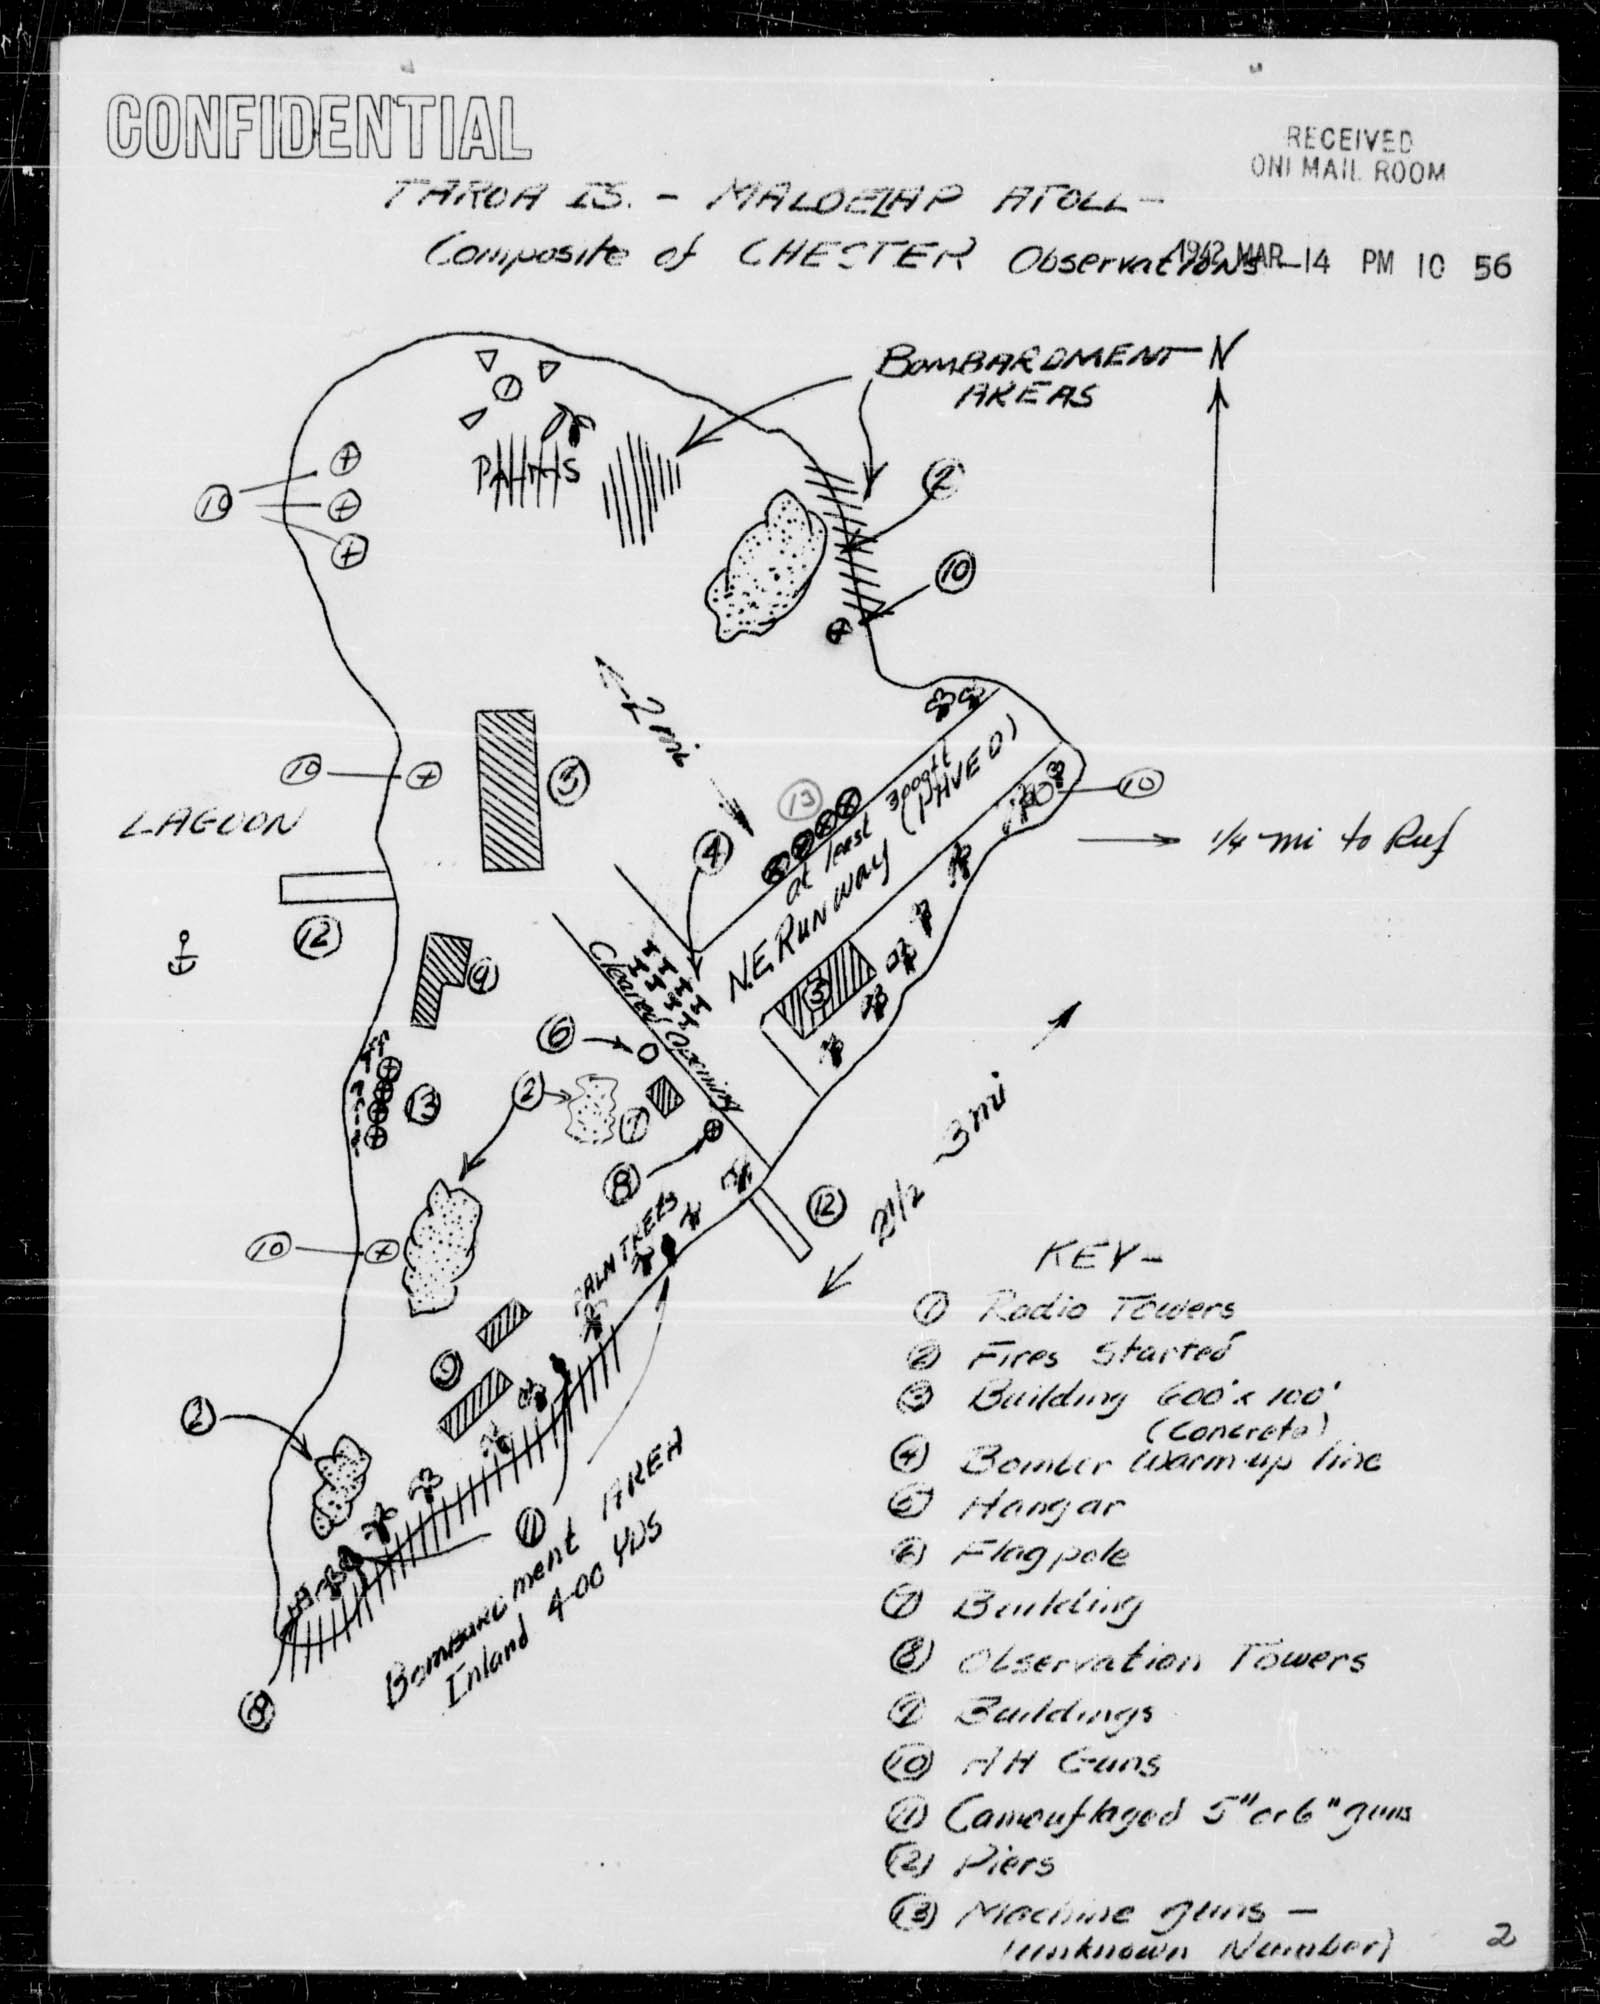 CONFIDENTIAL
RECEIVED
ONI MAIL ROOM
TAROA IS. - MALOELAP ATOLL -
Composite of CHESTER Observations -
1942 MAR 14 PM 10 56
BOMBARDMENT
AREAS
N
1
PALMS
10
2
10
2 mi
10
3
13
at least 3000ft
N.E. RUNWAY (PAVED)
10
4
LAGOON
1/4 mi to Reef
12
9
Cleared Opening
5
6
2
13
7
8
2 1/2 - 3 mi
12
PALM TREES
10
9
2
11
Bombardment AREA
Inland 400 YDS
8
KEY -
1 Radio Towers
2 Fires Started
3 Building 600' x 100'
(Concrete)
4 Bomber Warm-up line
5 Hangar
6 Flagpole
7 Building
8 Observation Towers
9 Buildings
10 AA Guns
11 Camouflaged 5" or 6" guns
12 Piers
13 Machine guns -
(unknown Number)
2